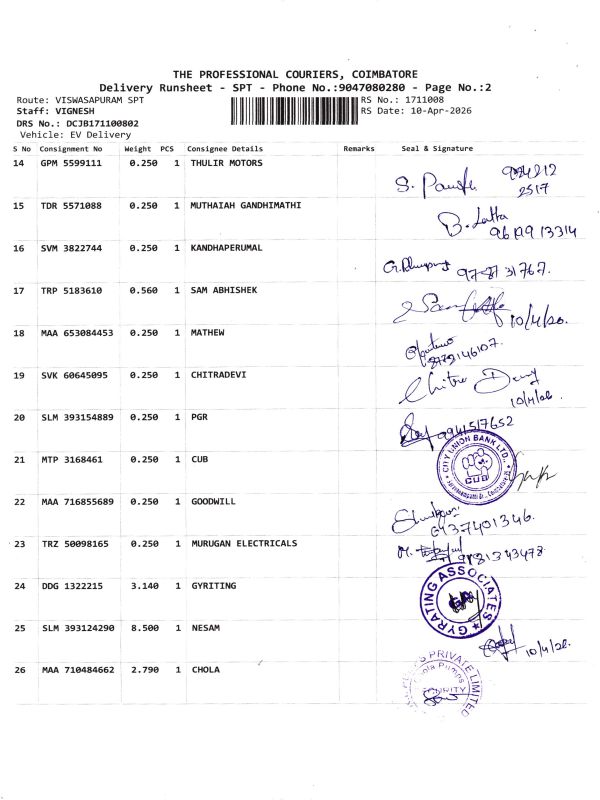 THE PROFESSIONAL COURIERS, COIMBATORE
Delivery Runsheet - SPT - Phone No.:9047080280 - Page No.:2
Route: VISWASAPURAM SPT
RS No.: 1711008
Staff: VIGNESH
RS Date: 10-Apr-2026
DRS No.: DCJB171100802
Vehicle: EV Delivery
S No Consignment No Weight PCS Consignee Details Remarks Seal & Signature
14 GPM 5599111 0.250 1 THULIR MOTORS
2517
15 TDR 5571088 0.250 1 MUTHAIAH GANDHIMATHI
B. Latha
16 SVM 3822744 0.250 1 KANDHAPERUMAL
17 TRP 5183610 0.560 1 SAM ABHISHEK
10/4/26.
18 MAA 653084453 0.250 1 MATHEW
19 SVK 60645095 0.250 1 CHITRADEVI
Chitra Devy
10/4/26.
20 SLM 393154889 0.250 1 PGR
9941517652
21 MTP 3168461 0.250 1 CUB
CITY UNION BANK LTD.,
CUB
22 MAA 716855689 0.250 1 GOODWILL
23 TRZ 50098165 0.250 1 MURUGAN ELECTRICALS
24 DDG 1322215 3.140 1 GYRITING
GYRATING ASSOCIATES
25 SLM 393124290 8.500 1 NESAM
10/4/26.
26 MAA 710484662 2.790 1 CHOLA
PRIVATE LIMITED
Pumps